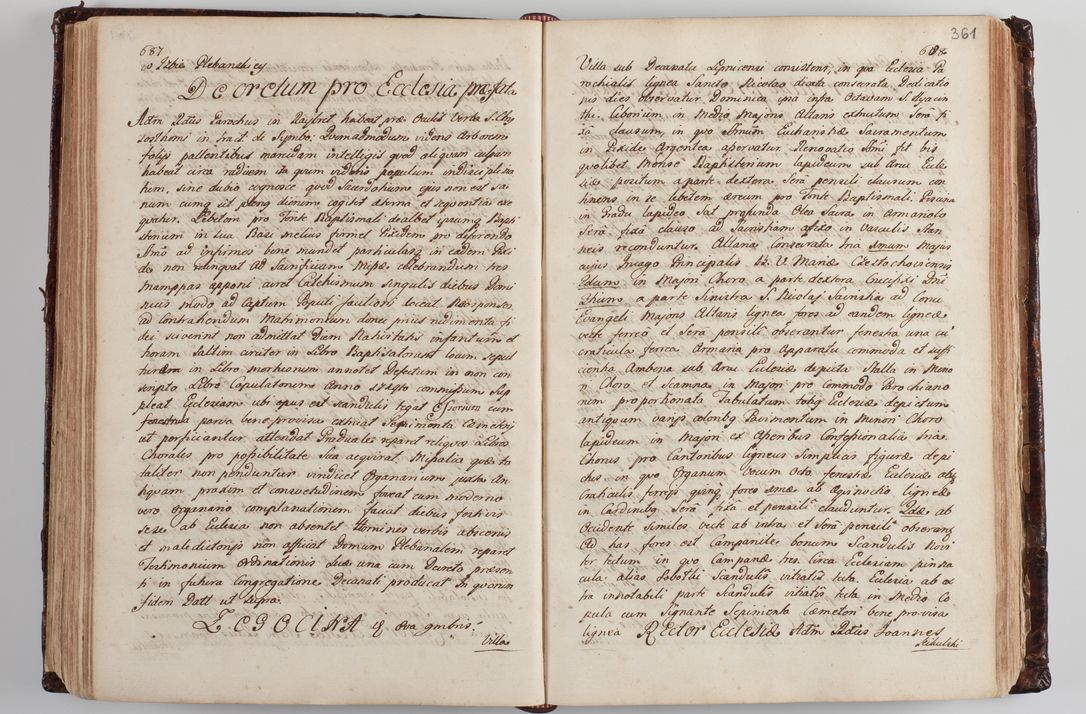 687
w Izbie Plebanskiey
Decretum pro Ecclesia præfata
Adm Rdus Parochus in Raybrot habeat præ Oculis Verba S. Chry
sostomi in tract. de Symbo: Quemadmodum videns Arborem
folijs pallentibus marcidam intellegis quod aliquam culpam
habeat circa radicem ita quum videris populum indisciplina
tum, sine dubio cognosce quod Sacerdotium ejus non est sa
num cung ut long diorum cogitet æterna et sequentia exe
quatur. Lebetem pro Fonte Baptismali dealbet ipsumq Bapti
sterium in sua Basi melius firmet Pixidem pro deferendo
Smo ad infirmos bene mundet particulas in eadem Pixi
de non relinquat ad Sacrificium Missæ celebrandum tres
mampas apponi curet Catechismum singulis diebus Domi
nicis modo ad captum Populi faciliori doceat Neosponsos
ad contrahendum Matrimonium donec prius rudimenta fi
dei sciverint non admittat Diem Nativitatis infantum et
horam saltim circiter in Libro Baptisatorum locum sepul
turæ in Libro mortuorum annotet Defectum in non con
scripto Libro Copulatorum Anno commissum Sup
pleat Ecclesiam ubi opus est scandulis tegat Ossorium cum
fenestrua parva bene provisa extruat Sepimenta Cæmeterij
ut perficiantur attendat Graduales reparet reliquos Libros
Chorales pro possibilitate sua acquirat Missalia quæ to
taliter non penduntur vindicet Organarium juxta An
tiquam praxim et consvetudinem foveat cum moderno
vero organario complanationem faciat diebus festivis
sese ab Ecclesia non absentet Homines verbis obscœnis
et maledictorijs non afficiat Domum Plebanalem reparet
Testimonium ordinationis suæ una cum Decreto præsen
ti in futura Congregatione Decanali producat In quorum
fidem Datt ut supra.
ŁEDOCINA
Villa
361
688
Villa sub Decanatu Lipnicensi consistens, in qua Ecclesia Pa
rochialis lignea Sancto Nicolao dicata consecrata Dedicatio
nis dies observatur Dominica ipsa infra Octavam S. Hyacin
thi. Ciborium in Medio Majoris Altaris extructum Sera fi
xa clausum, in quo Smum Eucharistiæ Sacramentum
in Pixide Argentea asservatur. Renovatio Smi fit bis
quolibet Mense Baptisterium lapideum sub Arcu Eccle
siæ positum a parte dextera Sera pensili clausum con
tinens in se lebetem æreum pro Fonte Baptismali. Piscina
in Gradu lapideo Sat profunda Olea Sacra in armariolo
Sera fixa clauso ad Sacristiam afixo in vasculis Stan
neis reconduntur. Altaria consecrata tria 1mum Majus
cujus Imago Principalis B. V. Mariæ Czestochoviensis
2dum in Majori Choro a parte dextera Crucifixi Dni
3tium a parte Sinistra S. Nicolaj Sacristia ad Cornu
Evangeli Majoris Altaris lignea fores ad eandem ligneæ
vecte ferreo et Sera pensili obserantur fenestra una cu
craticula ferrea Armaria pro Apparatu commoda et suffi
cientia Ambona sub Arcu Ecclesiæ depicta Stalla in Mino
ri Choro et Scamna in Majori pro commodo Parochiano
rum proportionata Tabulatum totiq Ecclesiæ depictum
antiquum varijs coloribq Pavimentum in Minori Choro
lapideum in Majori ex Asseribus Confessionalia tria
Chorus pro Cantoribus ligneus simplicis figuræ depi
ctus in quo Organum Vocum Octo fenestræ Ecclesiæ absq
Craticulis ferreis quinq fores 1mæ ab Aquinoctio ligneæ
in Cardinibq Sera fixa et pensili clauduntur. 2dæ ab
Occidente similes vecte ab intra et Sera pensili obserantq
Ad has fores est Campanile bonum Scandulis Novi
ter tectum in quo Campanæ tres. Circa Ecclesiam pinna
cula alias Soboty Scandulis vitiatis tecta. Ecclesia ab ex
tra in notabili parte Scandulis vitiatis tecta in Medio Co
pula cum Signante Sepimenta Cæmeterij bene provisa
lignea REctor Ecclesiæ Adm Rdus Joannes